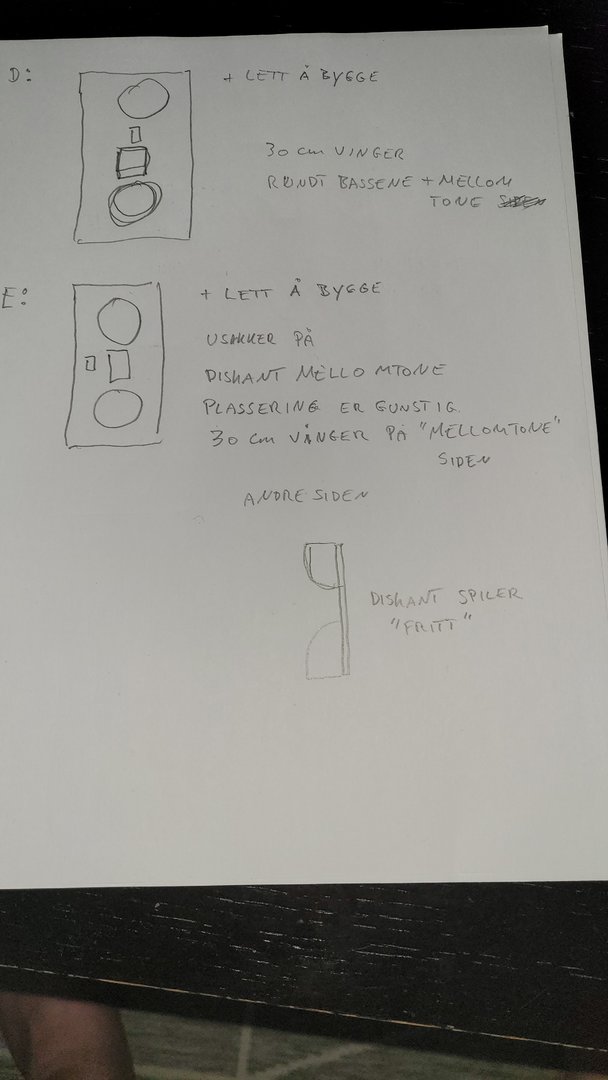 D:
+ LETT Å BYGGE
30 cm VINGER
RUNDT BASSENE + MELLOM
TONE
E:
+ LETT Å BYGGE
USIKKER PÅ
DISKANT MELLOMTONE
PLASSERING ER GUNSTIG.
30 cm VINGER PÅ "MELLOMTONE"
SIDEN
ANDRE SIDEN
DISKANT SPILER
"FRITT"